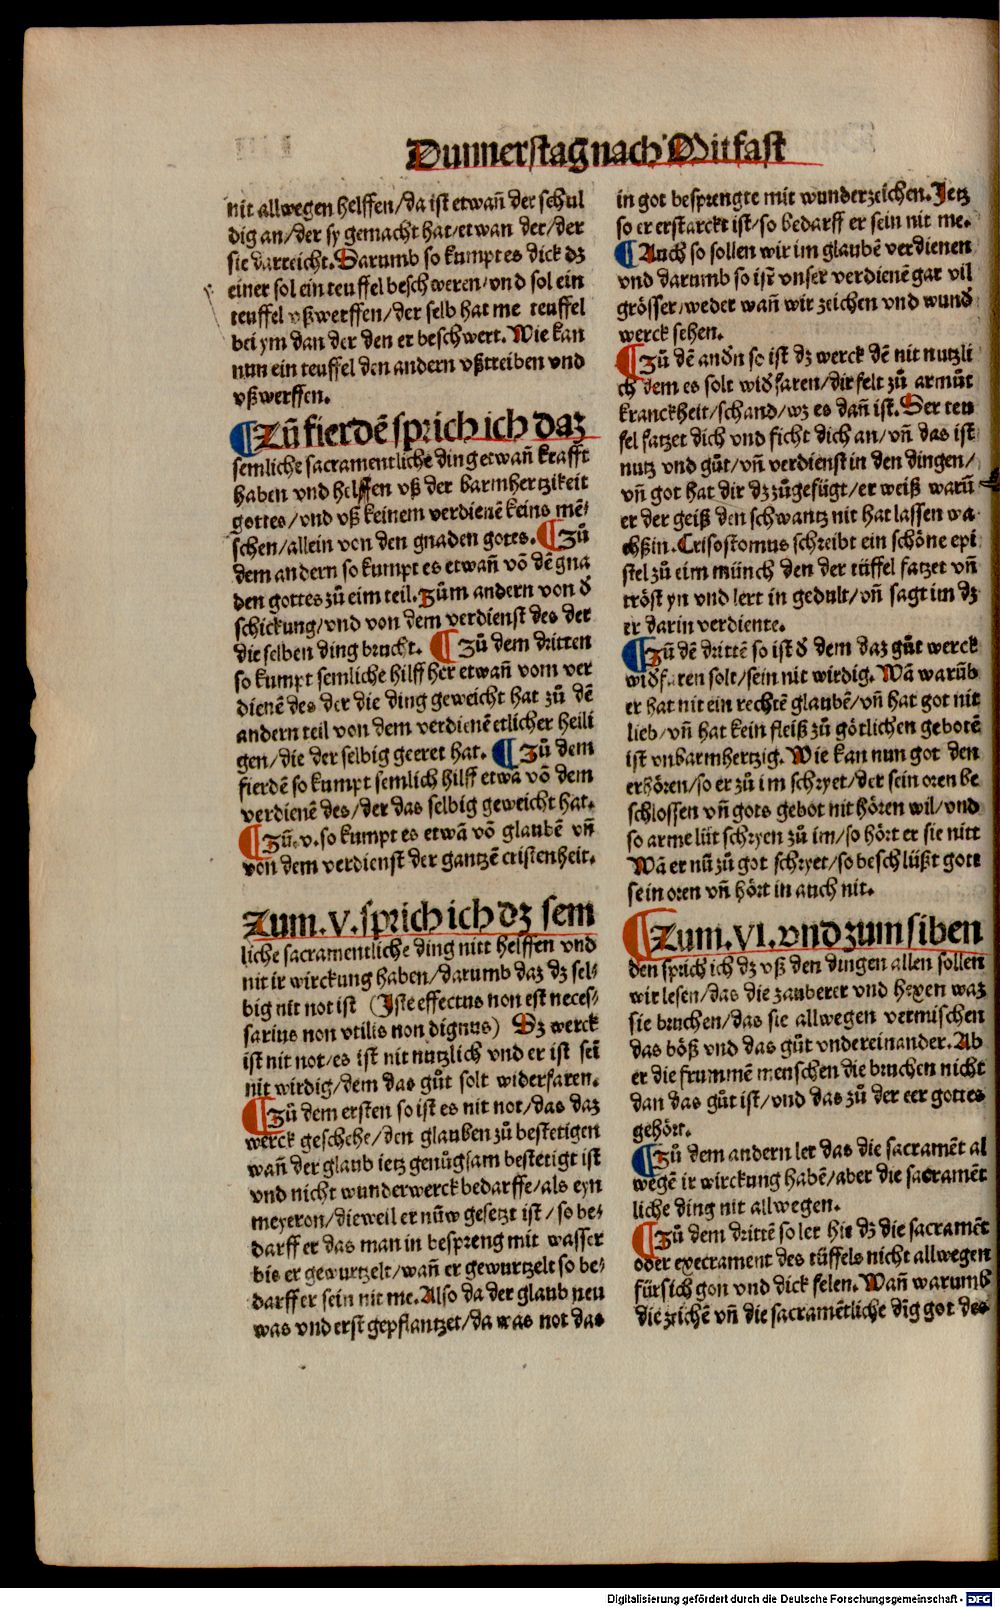 Dunnerstag nach Mitfast
nit allwegen helffen/da ist etwañ der schul
dig an/der sy gemacht hat/etwan der/der
sie darreicht. Darumb so kumpt es dick dz
einer sol ein teuffel beschweren/vnd sol ein
teuffel vßwerffen/der selb hat me teuffel
bei ym dan der den er beschwert. Wie kan
nun ein teuffel den andern vßtreiben vnd
vßwerffen.
¶ Zů fierdē sprich ich daz
semliche sacramentliche ding etwañ krafft
haben vnd helffen vß der barmhertzikeit
gottes/vnd vß keinem verdienē keins mē⸗
schen/allein von den gnaden gotes. ¶ Zů
dem andern so kumpt es etwañ vō dē gna
den gottes zů eim teil. Zům andern von d̄
schickung/vnd von dem verdienst des der
die selben ding brucht. ¶ Zů dem dritten
so kumpt semliche hilff her etwañ vom ver
dienē des der die ding geweicht hat zů dē
andern teil von dem verdienē etlicher heili
gen/die der selbig geeret hat. ¶ Zů dem
fierdē so kumpt semlich hilff etwā vō dem
verdienē des/der das selbig geweicht hat.
¶ Zů.v. so kumpt es etwā vō glaubē vñ
von dem verdienst der gantzē cristenheit.
Zum.V. sprich ich dz sem
liche sacramentliche ding nitt helffen vnd
nit ir wirckung haben/darumb daz dz sel⸗
big nit not ist (Iste effectus non est neces⸗
sarius non vtilis non dignus) Dz werck
ist nit not/es ist nit nutzlich vnd er ist sei
nit wirdig/dem das gůt solt widerfaren.
¶ Zů dem ersten so ist es nit not/das daz
werck geschehe/den glauben zů bestetigen
wañ der glaub ietz genůgsam bestetigt ist
vnd nicht wunderwerck bedarffe/als eyn
meyeron/dieweil er nůw gesetzt ist/so be⸗
darff er das man in bespreng mit wasser
bis er gewurtzelt/wañ er gewurtzelt so be⸗
darff er sein nit me. Also da der glaub neu
was vnd erst gepflantzet/da was not das
in got besprengte mit wunderzeichen. Jetz
so er erstarckt ist/so bedarff er sein nit me.
¶ Auch so sollen wir im glaubē verdienen
vnd darumb so ist vnser verdienē gar vil
grösser/weder wañ wir zeichen vnd wund̄
werck sehen.
¶ Zů dē and̄n so ist dz werck dē nit nutzli
ch dem es solt wid̄faren/dir felt zů armůt
kranckheit/schand/wz es dañ ist. Der teu
fel fatzet dich vnd ficht dich an/vñ das ist
nutz vnd gůt/vñ verdienst in den dingen/
vñ got hat dir dz zůgefügt/er weiß warū
er der geiß den schwantz nit hat lassen wa
chßin. Crisostomus schreibt ein schöne epi
stel zů eim münch den der tüffel fatzet vñ
tröst yn vnd lert in gedult/vñ sagt im dz
er darin verdiente.
¶ Zů dē drittē so ist d̄ dem daz gůt werck
wid̄faren solt/sein nit wirdig. Wā warūb
er hat nit ein rechtē glaubē/vñ hat got nit
lieb/vñ hat kein fleiß zů götlichen gebotē
ist vnbarmhertzig. Wie kan nun got den
erhören/so er zů im schryet/der sein oren be
schlossen vñ gots gebot nit hören wil/vnd
so arme lüt schryen zů im/so hört er sie nitt
Wā er nů zů got schryet/so beschlüßt gott
sein oren vñ hört in auch nit.
¶ Zum.VI. vnd zum siben
den sprich ich dz vß den dingen allen sollen
wir lesen/das die zauberer vnd hexen waz
sie bruchen/das sie allwegen vermischen
das böß vnd das gůt vndereinander. Ab
er die frummē menschen die bruchen nicht
dan das gůt ist/vnd das zů der eer gottes
gehört.
¶ Zů dem andern ler das die sacramēt al
wegē ir wirckung habē/aber die sacramēt
liche ding nit allwegen.
¶ Zů dem drittē so ler hie dz die sacramēt
oder execrament des tüffels nicht allwegen
fürsich gon vnd dick felen. Wañ warumb
die zeichē vñ die sacramētliche dīg got des
Digitalisierung gefördert durch die Deutsche Forschungsgemeinschaft - DFG